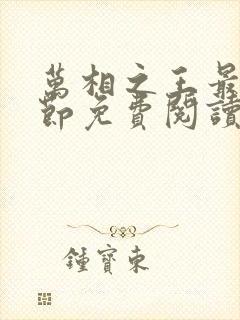 萬相之王最
節免費閱讀
鍾寶東